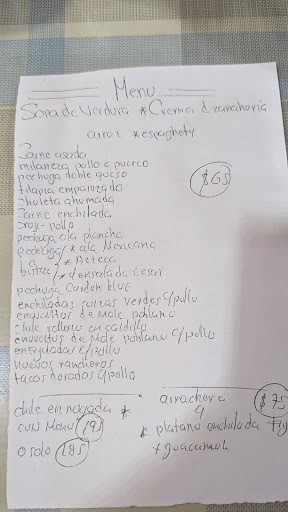 Menu
Sopa de Verdura *Crema d zanahoria
arroz *espaghety
Carne asada
milaneza pollo e puerco
pechuga doble queso
tilapia empanizado
chuleta ahumada
Carne enchilada
croji-pollo
pechuga a la plancha
pechuga/*a la Mexicana
bistec/*Azteca
*densalada cesar
pechuga Gorden blue
enchiladas suizas verdes c/pollo
envueltos de Mole poblano
chile relleno en caldillo
envueltos de Mole poblano c/pollo
enfrijoladas c/pollo
huevos rancheros
tacos dorados c/pollo
$65
chile en nogada *
CON Menu 195
o solo 185
arrachera $75
platano enchilada
*guacamole